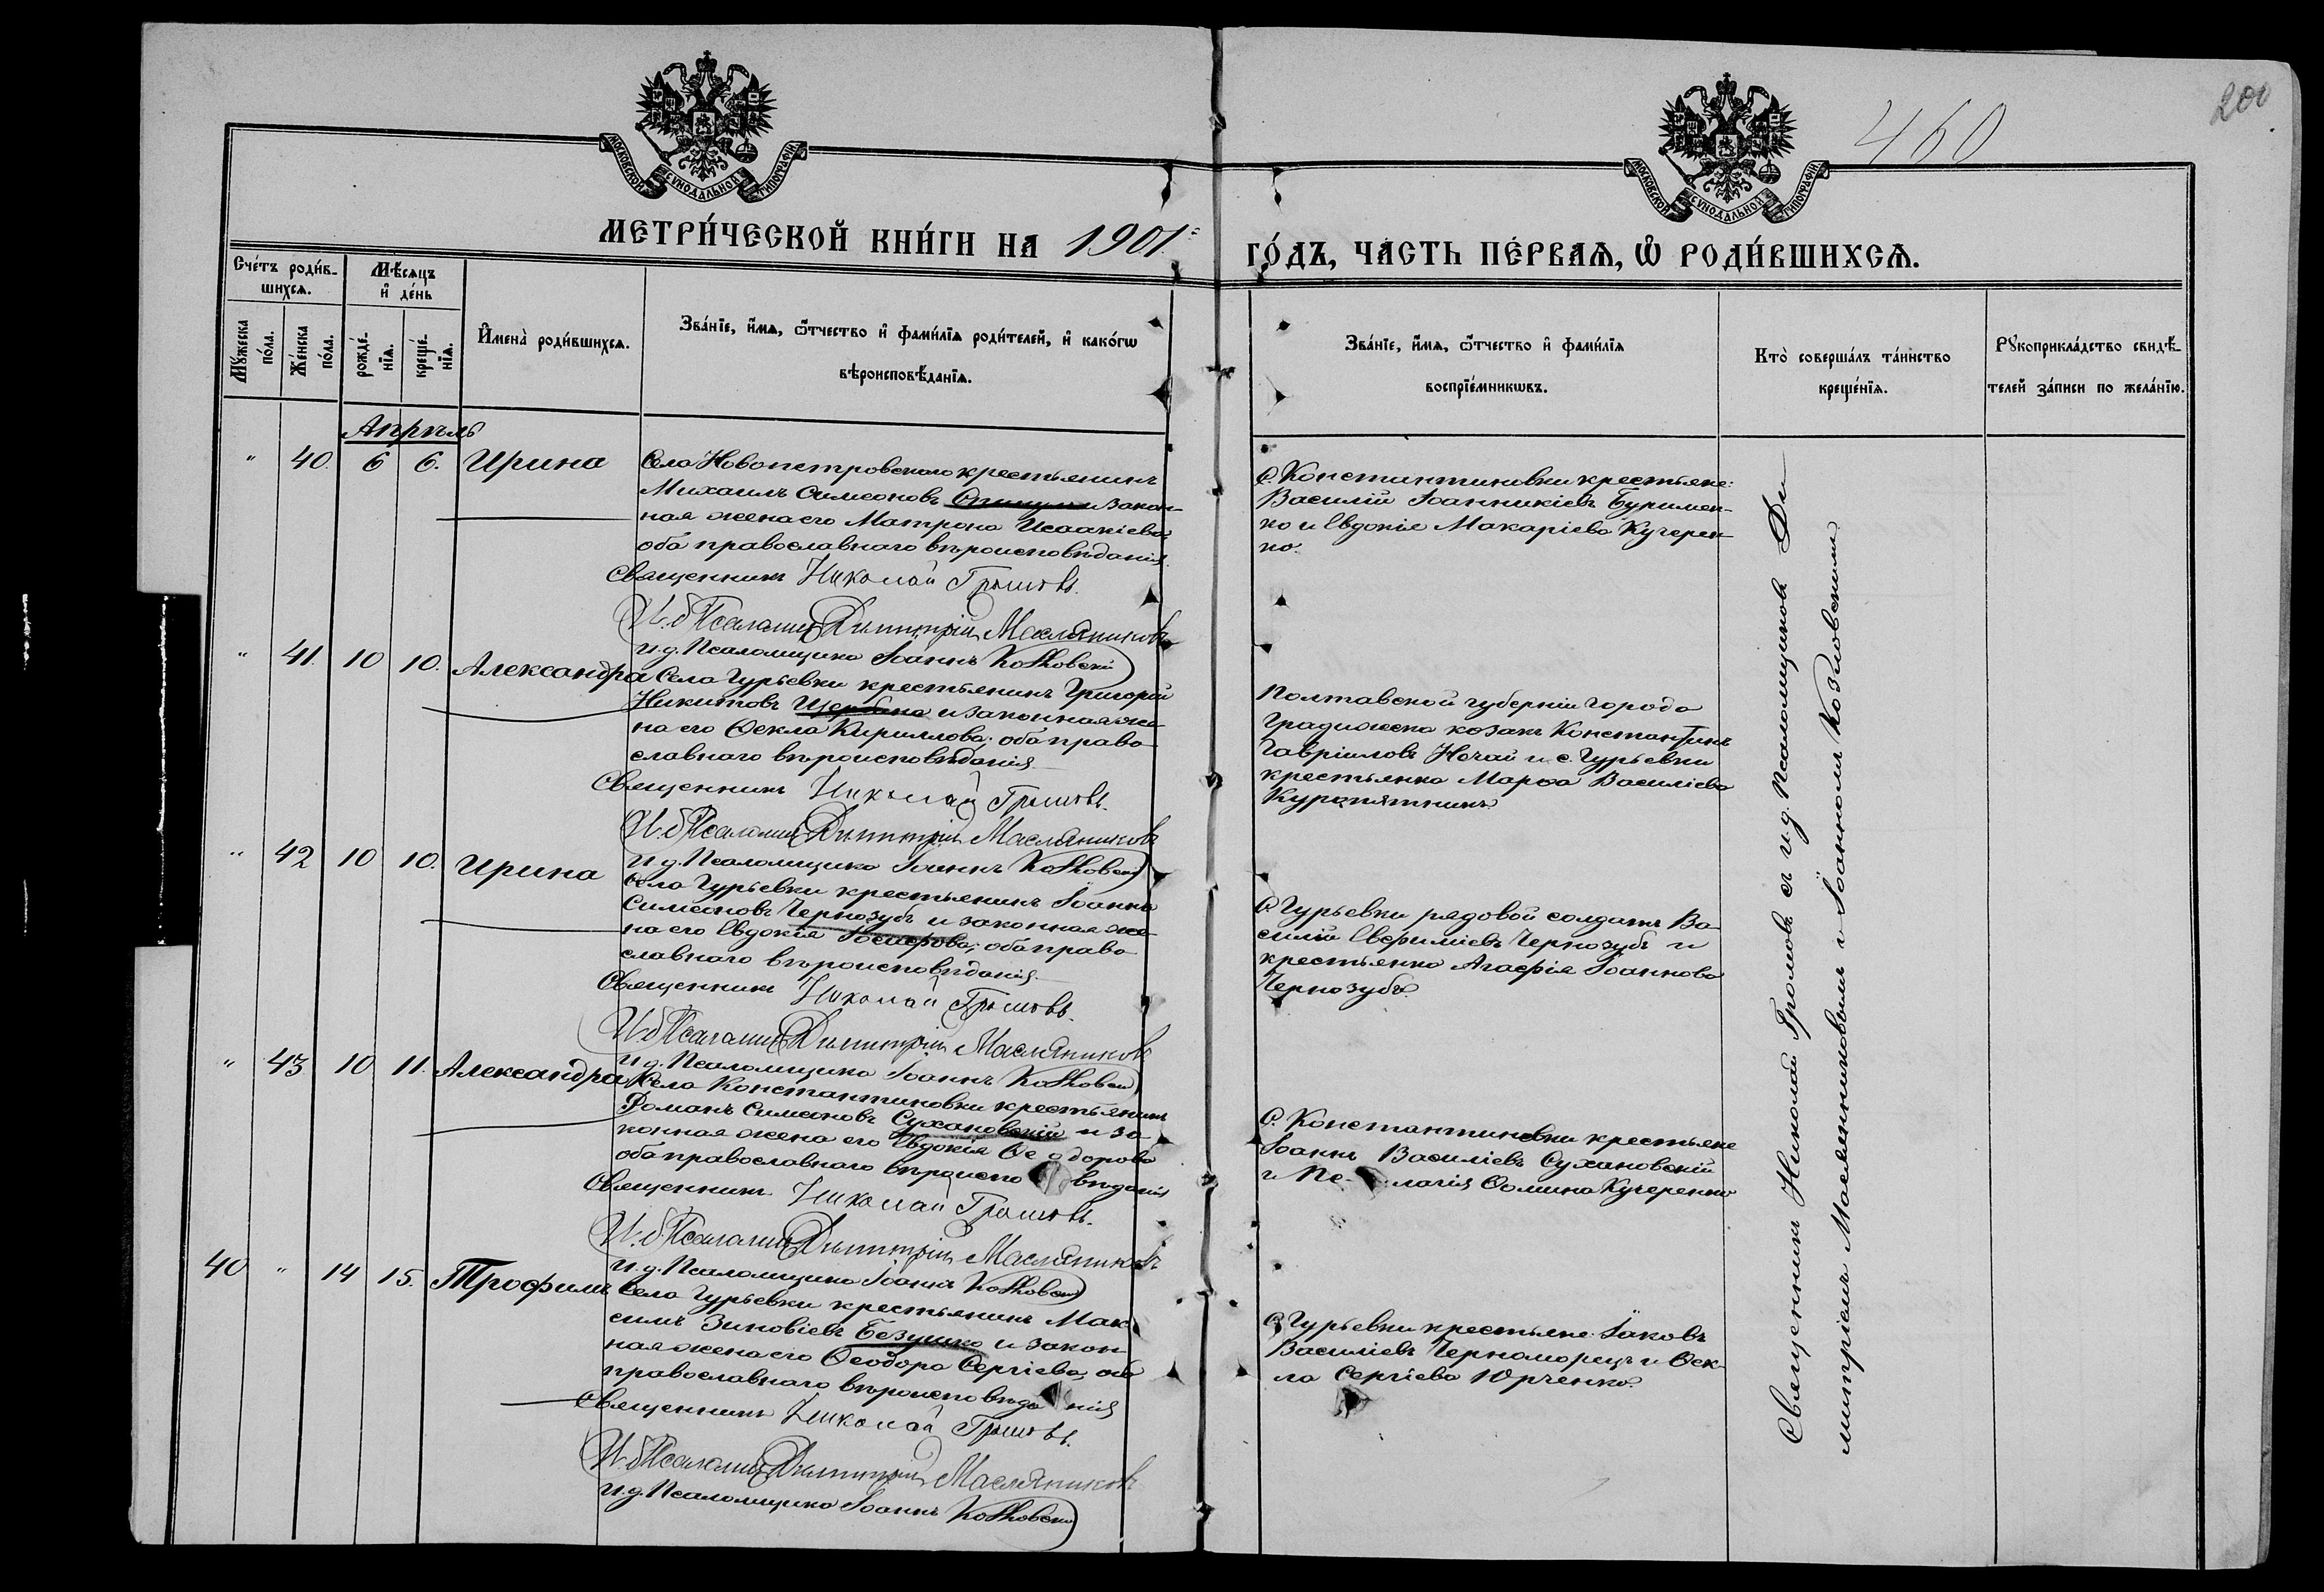 200
460
МОСКОВСКОЙ СѴНОДАЛЬНОЙ ТИПОГРАФІИ
МОСКОВСКОЙ СѴНОДАЛЬНОЙ ТИПОГРАФІИ
МЕТРИ́ЧЕСКОЙ КНИ́ГИ НА 1901
ГО́ДЪ, ЧА́СТЬ ПЕ́РВАѦ, Ѽ РОДИ́ВШИХСѦ.
Сче́тъ роди́в-
шихсѧ.
Мѣ́сѧцъ
и҆ де́нь
Мꙋ́жеска
по́ла.
Же́нска
по́ла.
рожде́-
нїѧ.
креще́-
нїѧ.
И҆мена̀ роди́вшихсѧ.
Зва́нїе, и҆́мѧ, ѻ҆́тчество и҆ фами́лїѧ роди́телей, и҆ како́гѡ
вѣроисповѣ́данїѧ.
Зва́нїе, и҆́мѧ, ѻ҆́тчество и҆ фами́лїѧ
воспрїе́мникѡвъ.
Кто̀ соверша́лъ та́инство
креще́нїѧ.
Рꙋкоприкла́дство свидѣ́-
телей за́писи по жела́нїю.
Апрѣль
" 40. 6 6. Ирина
Села Новопетровскаго крестьянинъ
Михаилъ Симеоновъ и закон-
ная жена его Матрона Исаакіева,
оба православнаго вѣроисповѣданія.
Священникъ Николай Громовъ.
И.д. Псаломщ. Димитрій Масляниковъ
и.д. Псаломщика Іоаннъ Козловскій
С. Константиновки крестьяне:
Василій Іоанникіевъ Буримен-
ко и Евдокія Макаріева Кучерен-
ко.
" 41. 10 10. Александра
Села Гурьевки крестьянинъ Григорій
Никитовъ Щербина и законная же-
на его Ѳекла Кириллова, оба право-
славнаго вѣроисповѣданія
Священникъ Николай Громовъ.
И.д. Псаломщ. Димитрій Масляниковъ
и.д. Псаломщика Іоаннъ Козловскій
Полтавской губерніи города
Градижска козакъ Константинъ
Гавріиловъ Нечай и с. Гурьевки
крестьянка Марѳа Василіева
Куропятникъ.
" 42 10 10. Ирина
Села Гурьевки крестьянинъ Іоаннъ
Симеоновъ Чернозубъ и законная же-
на его Евдокія Іосифова, оба право-
славнаго вѣроисповѣданія.
Священникъ Николай Громовъ.
И.д. Псаломщ. Димитрій Масляниковъ
и.д. Псаломщика Іоаннъ Козловскій
С. Гурьевки рядовой солдатъ Ва-
силій Евѳиміевъ Чернозубъ и
крестьянка Агафія Іоаннова
Чернозубъ.
" 43 10 11. Александра
Села Константиновки крестьянинъ
Романъ Симеоновъ Сухановскій и за-
конная жена его Евдокія Ѳеодорова
оба православнаго вѣроисповѣданія
Священникъ Николай Громовъ.
И.д. Псаломщ. Димитрій Масляниковъ
и.д. Псаломщика Іоаннъ Козловскій
С. Константиновки крестьяне
Іоаннъ Василіевъ Сухановскій
и Пе-лагія Ѳомина Кучеренко
40 " 14 15. Трофимъ
Села Гурьевки крестьянинъ Мак-
симъ Зиновіевъ Безушко и закон-
ная жена его Ѳеодора Сергіева, оба
православнаго вѣроисповѣданія
Священникъ Николай Громовъ.
И.д. Псаломщ. Димитрій Масляниковъ
и.д. Псаломщика Іоаннъ Козловскій
С. Гурьевки крестьяне: Іаковъ
Василіевъ Черноморецъ и Ѳек-
ла Сергіева Юрченко.
Священникъ Николай Громовъ съ и.д. Псаломщиковъ Ди-
митріемъ Маслянниковымъ и Іоанномъ Козловскимъ